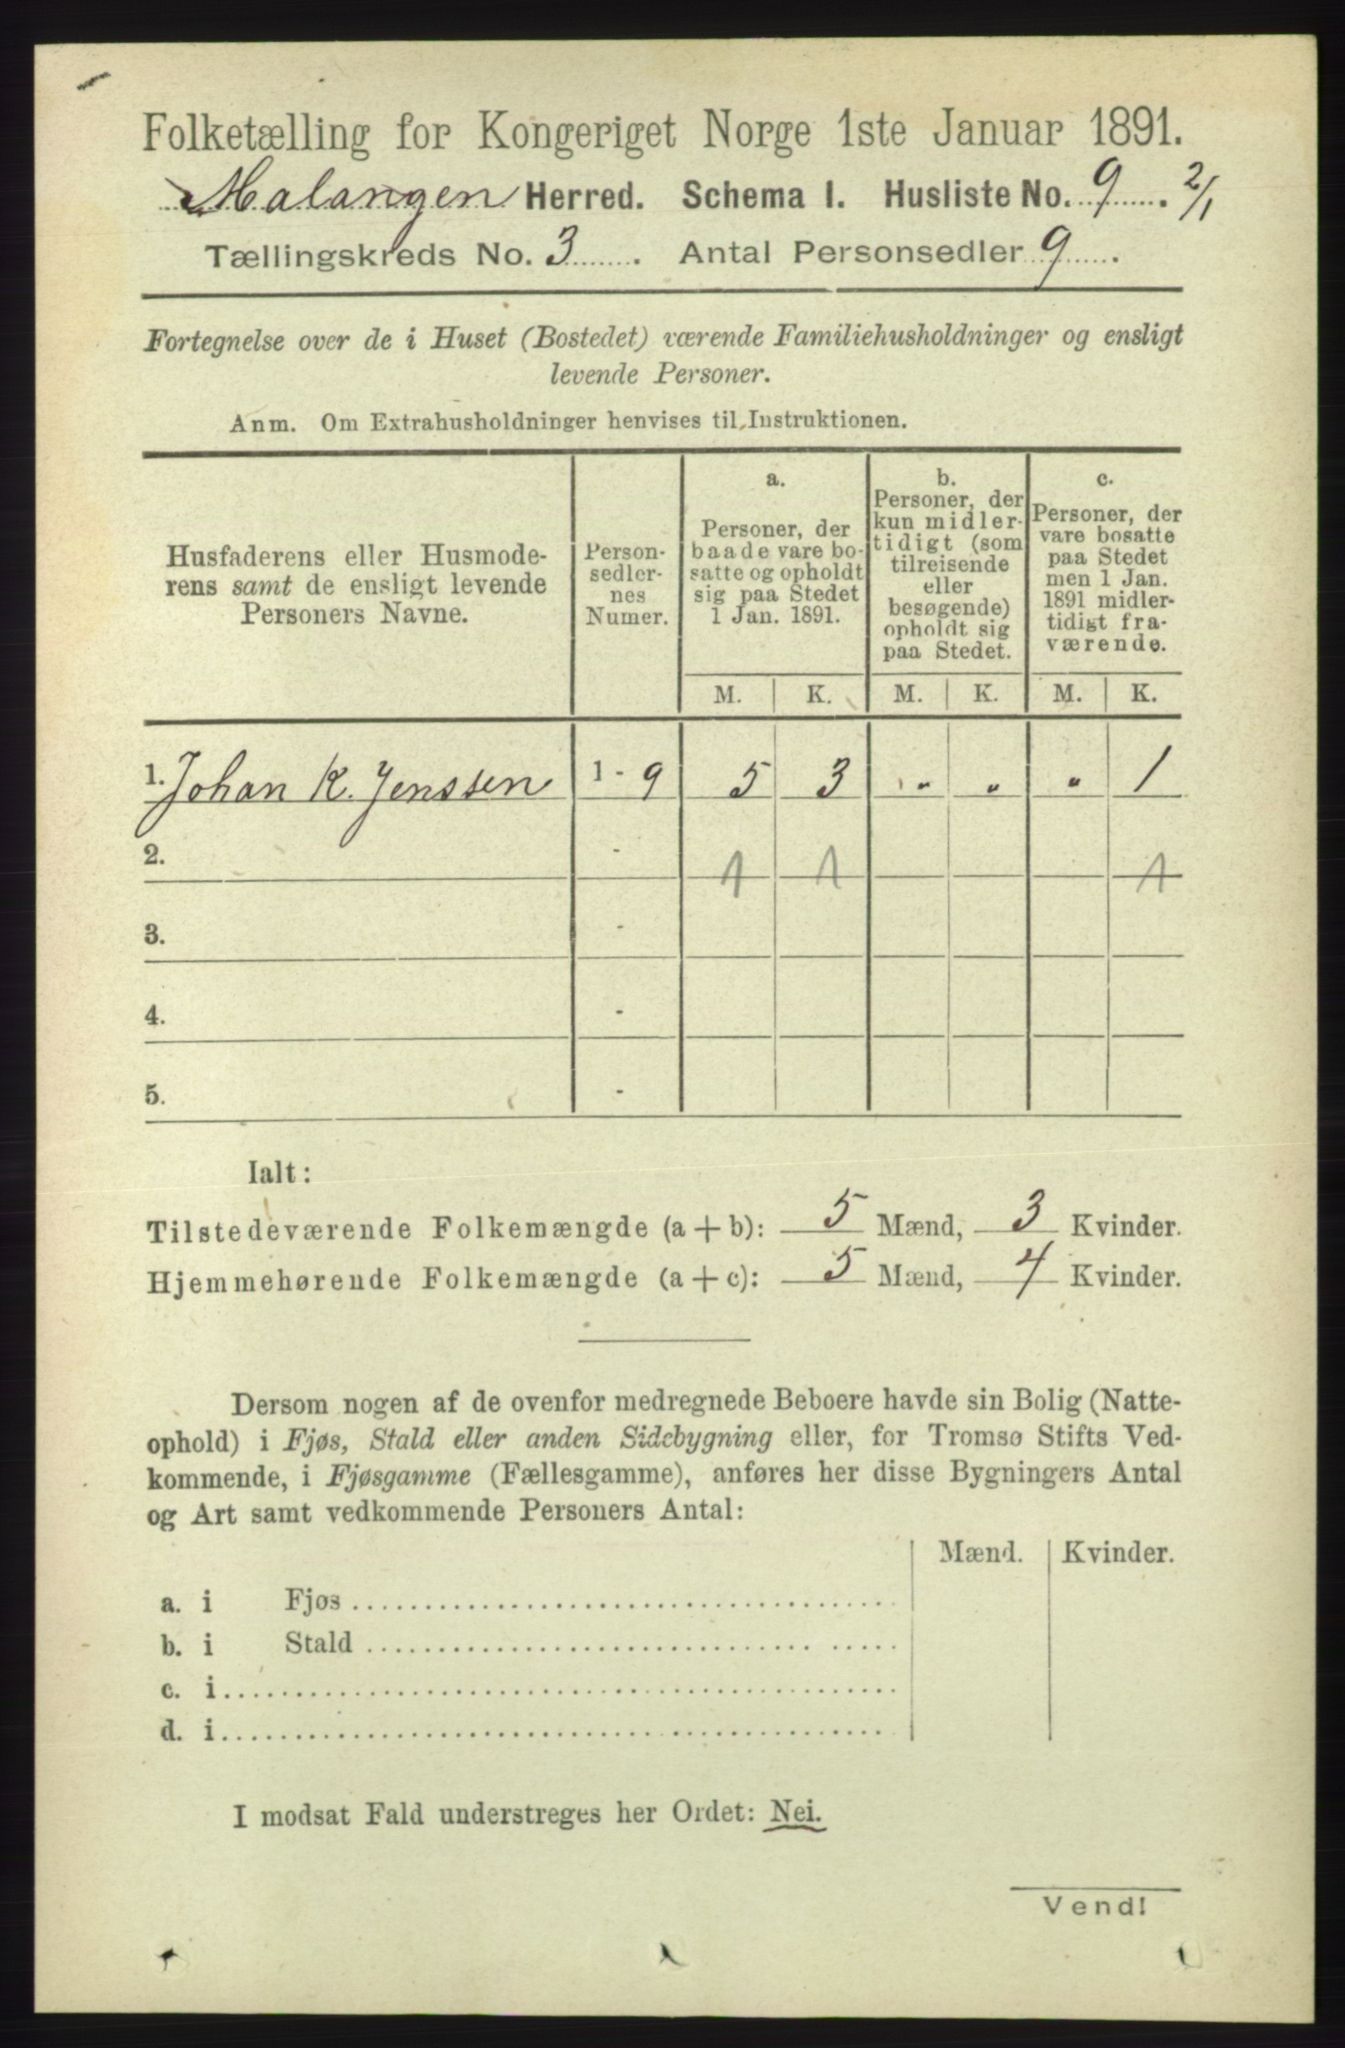 Folketælling for Kongeriget Norge 1ste Januar 1891.
Malangen Herred. Schema I. Husliste No. 9. 2/1
Tællingskreds No. 3. Antal Personsedler 9.
Fortegnelse over de i Huset (Bostedet) værende Familiehusholdninger og ensligt
levende Personer.
Anm. Om Extrahusholdninger henvises til Instruktionen.
Husfaderens eller Husmode-
rens samt de ensligt levende
Personers Navne.
Person-
sedler-
nes
Numer.
a.
Personer, der
baade vare bo-
satte og opholdt
sig paa Stedet
1 Jan. 1891.
b.
Personer, der
kun midler-
tidigt (som
tilreisende
eller
besøgende)
opholdt sig
paa Stedet.
c.
Personer, der
vare bosatte
paa Stedet
men 1 Jan.
1891 midler-
tidigt fra-
værende.
M. K. M. K. M. K.
1. Johan K. Jenssen 1 - 9 5 3 " " " 1
2. - 1 1 1
3. -
4. -
5. -
Ialt:
Tilstedeværende Folkemængde (a + b): 5 Mænd, 3 Kvinder.
Hjemmehørende Folkemængde (a + c): 5 Mænd, 4 Kvinder.
Dersom nogen af de ovenfor medregnede Beboere havde sin Bolig (Natte-
ophold) i Fjøs, Stald eller anden Sidebygning eller, for Tromsø Stifts Ved-
kommende, i Fjøsgamme (Fællesgamme), anføres her disse Bygningers Antal
og Art samt vedkommende Personers Antal:
Mænd. Kvinder.
a. i Fjøs
b. i Stald
c. i
d. i
I modsat Fald understreges her Ordet: Nei.
Vend!